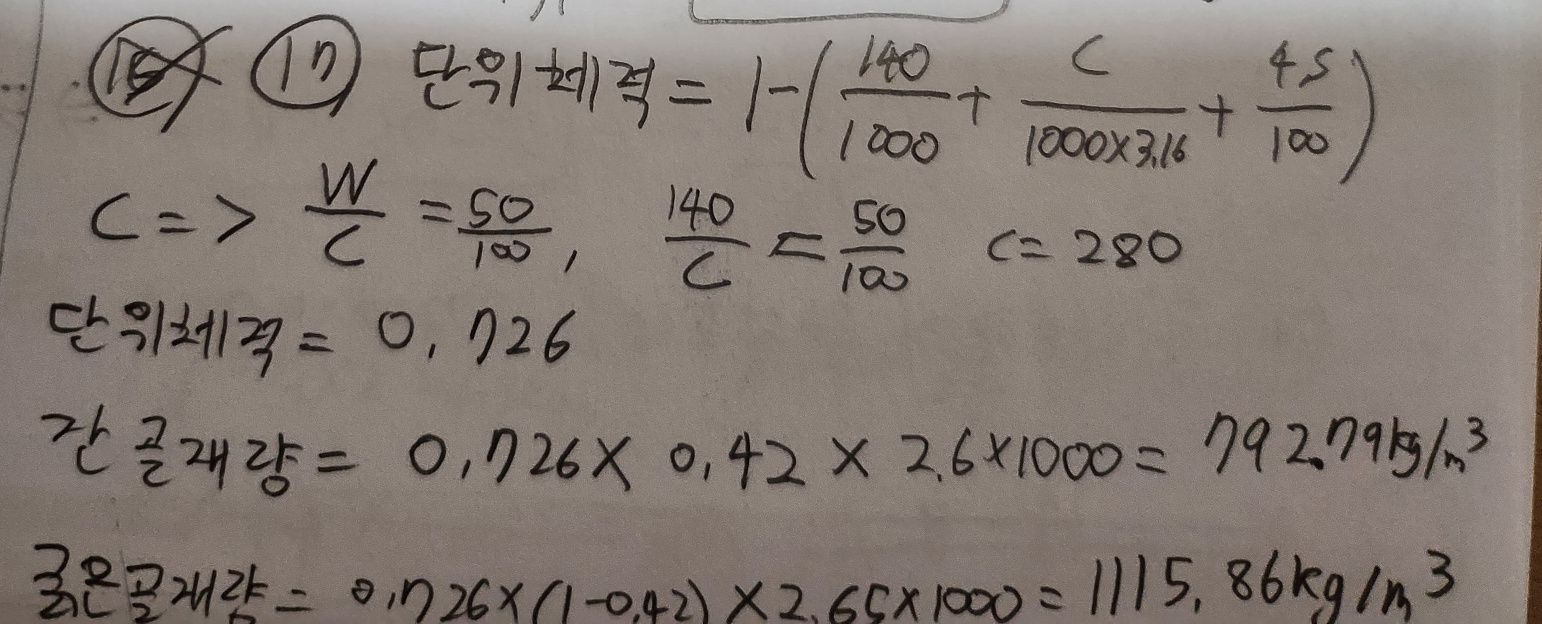 ⑰ 단위체적 = 1-(140/1000 + C/1000×3.16 + 45/100)
C => W/C = 50/100, 140/C = 50/100 C = 280
단위체적 = 0.726
잔골재량 = 0.726 × 0.42 × 2.6×1000 = 792.79kg/m³
굵은골재량 = 0.726×(1-0.42)×2.65×1000 = 1115.86kg/m³